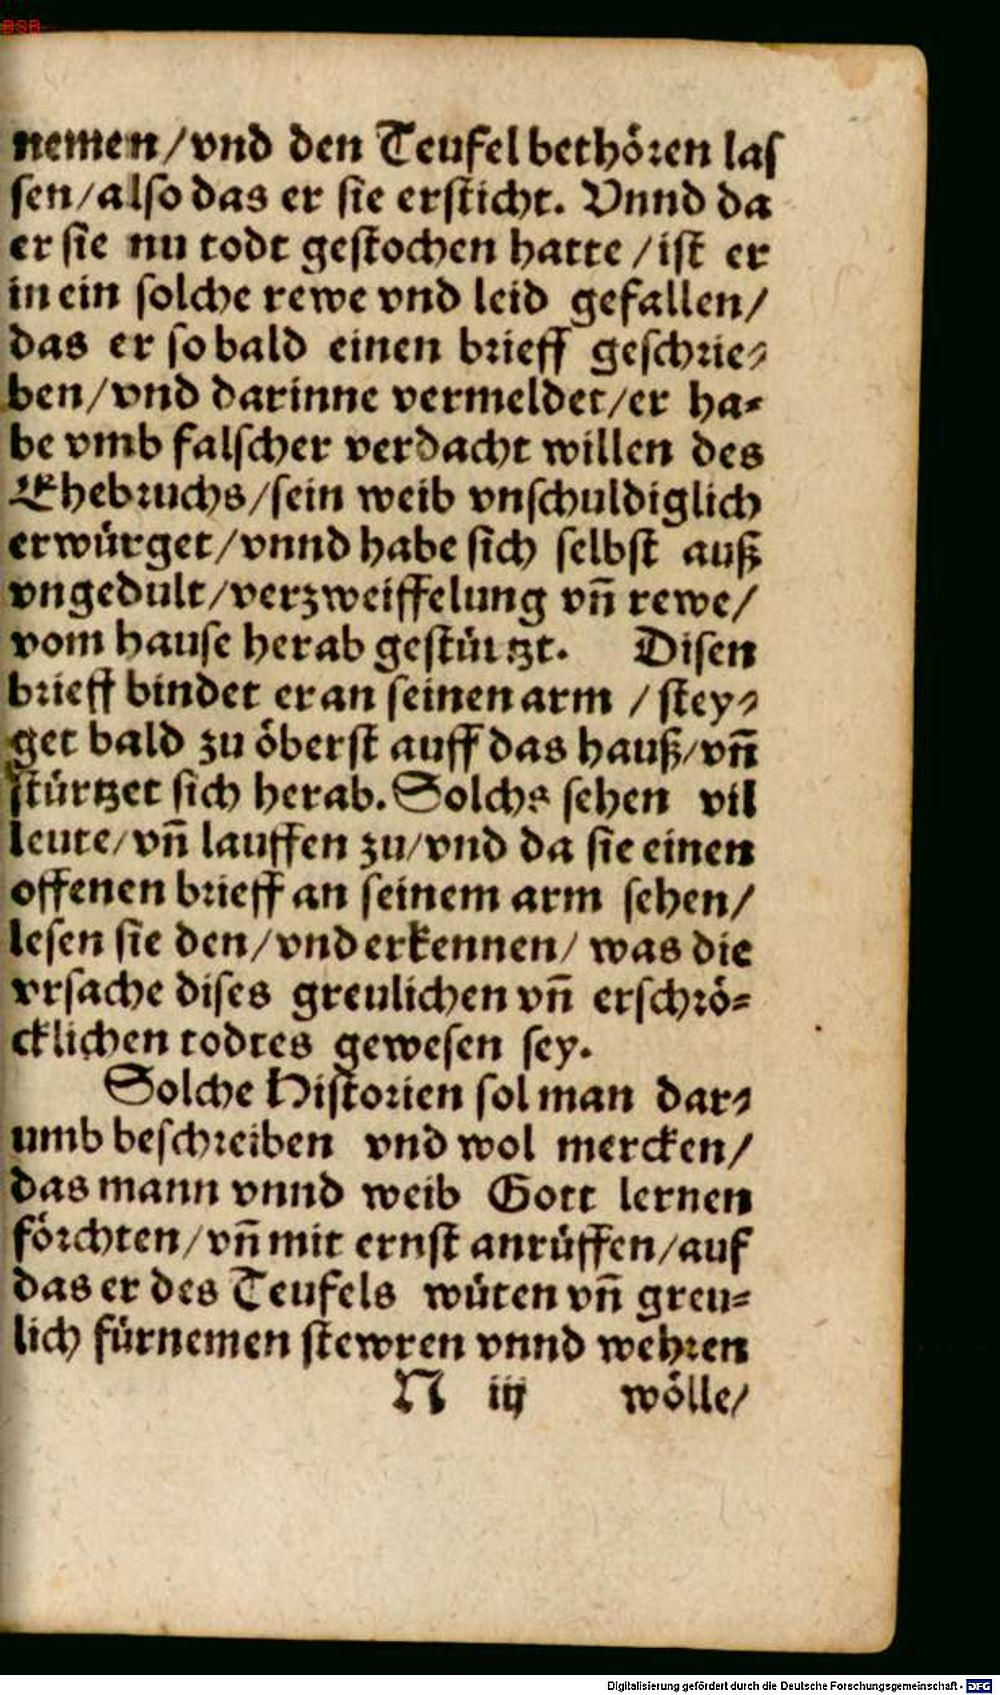 BSB
nemen/vnd den Teufel bethören las
sen/also das er sie ersticht. Vnnd da
er sie nu todt gestochen hatte/ist er
in ein solche rewe vnd leid gefallen/
das er so bald einen brieff geschrie-
ben/vnd darinne vermeldet/er ha-
be vmb falscher verdacht willen des
Ehebruchs/sein weib vnschuldiglich
erwürget/vnnd habe sich selbst auß
vngedult/verzweiffelung vñ rewe/
vom hause herab gestürtzt. Disen
brieff bindet er an seinen arm/stey-
get bald zu öberst auff das hauß/vñ
stürtzet sich herab. Solchs sehen vil
leute/vñ lauffen zu/vnd da sie einen
offenen brieff an seinem arm sehen/
lesen sie den/vnd erkennen/was die
vrsache dises greulichen vñ erschrö-
cklichen todtes gewesen sey.
Solche Historien sol man dar-
umb beschreiben vnd wol mercken/
das mann vnnd weib Gott lernen
förchten/vñ mit ernst anrüffen/auf
das er des Teufels wüten vñ greu-
lich fürnemen stewren vnnd wehren
N iij wölle/
Digitalisierung gefördert durch die Deutsche Forschungsgemeinschaft - DFG